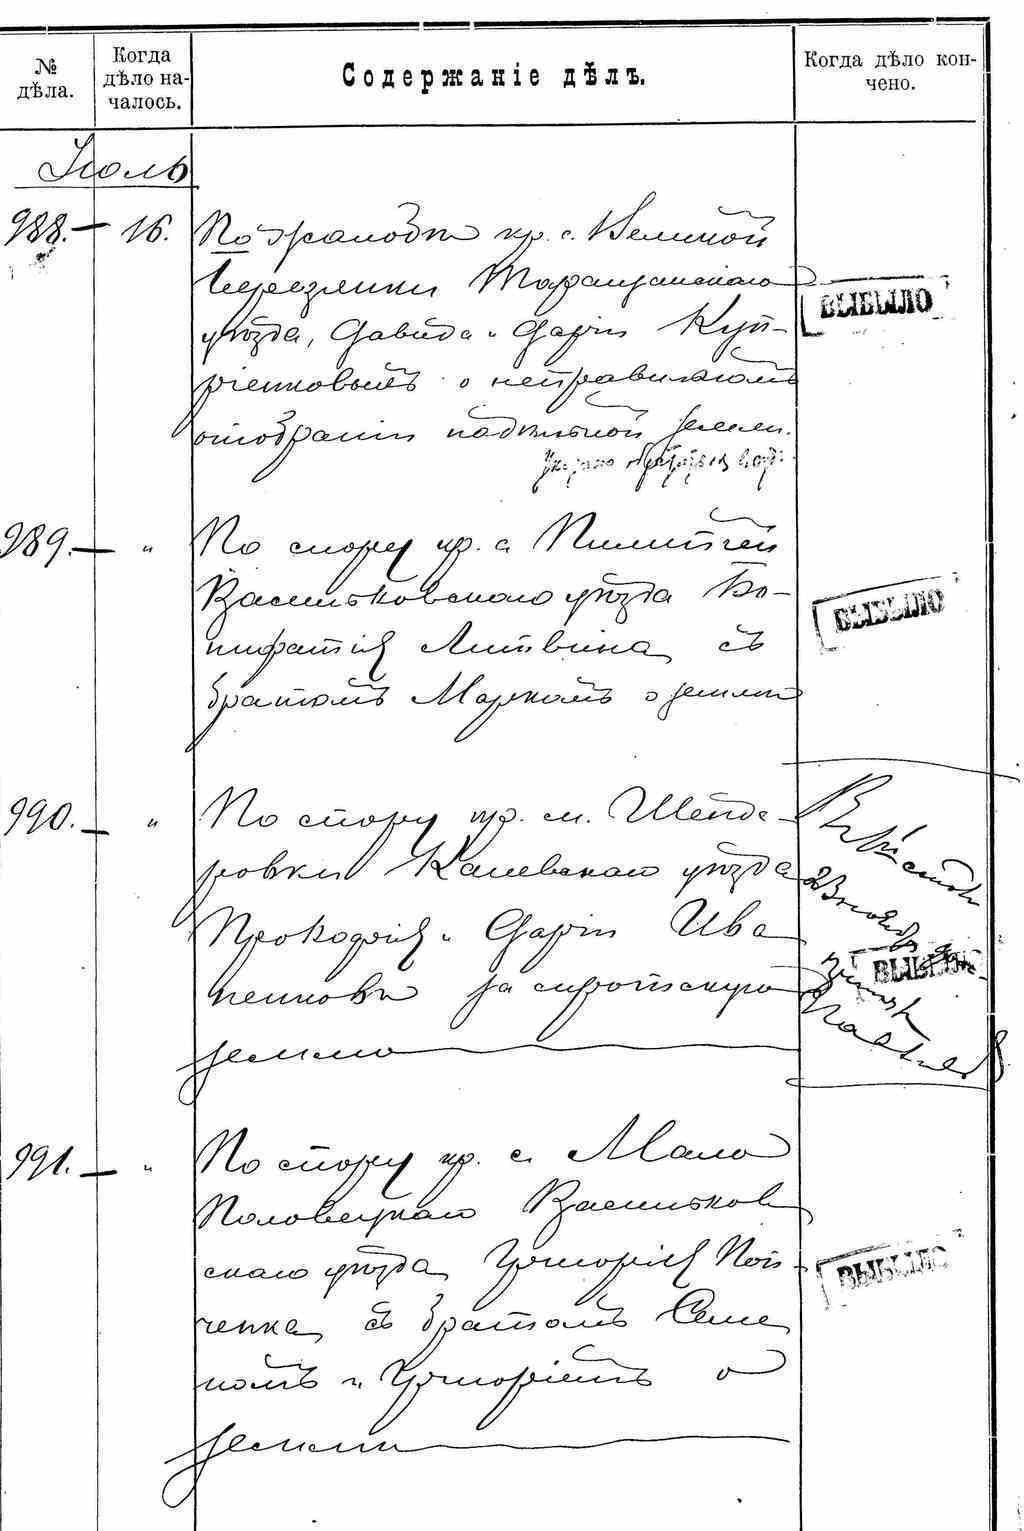 № дѣла.
Когда дѣло началось.
Содержаніе дѣлъ.
Когда дѣло кончено.
Іюль
988. — 16. По жалобѣ кр. с. Великой
Березянки Таращанскаго
уѣзда, Давида и Даріи Куп-
ріенковыхъ о неправильномъ
отобраніи надѣльной земли.
ВЫБЫЛО
989. — " По спору кр. с.
Васильковскаго уѣзда Бо-
нифатія Литвина съ
братомъ Маркомъ о землѣ
ВЫБЫЛО
990. — " По спору кр. м. Шенде-
ровки Каневскаго уѣзда
Прокофія и Даріи Ива
ненковъ за сиротскую
землю
ВЫБЫЛО
991. — " По спору кр. с. Мало
Половецкаго Васильков
скаго уѣзда Григорія
ченка съ братомъ Семе
номъ и Григоріемъ о
земли
ВЫБЫЛО